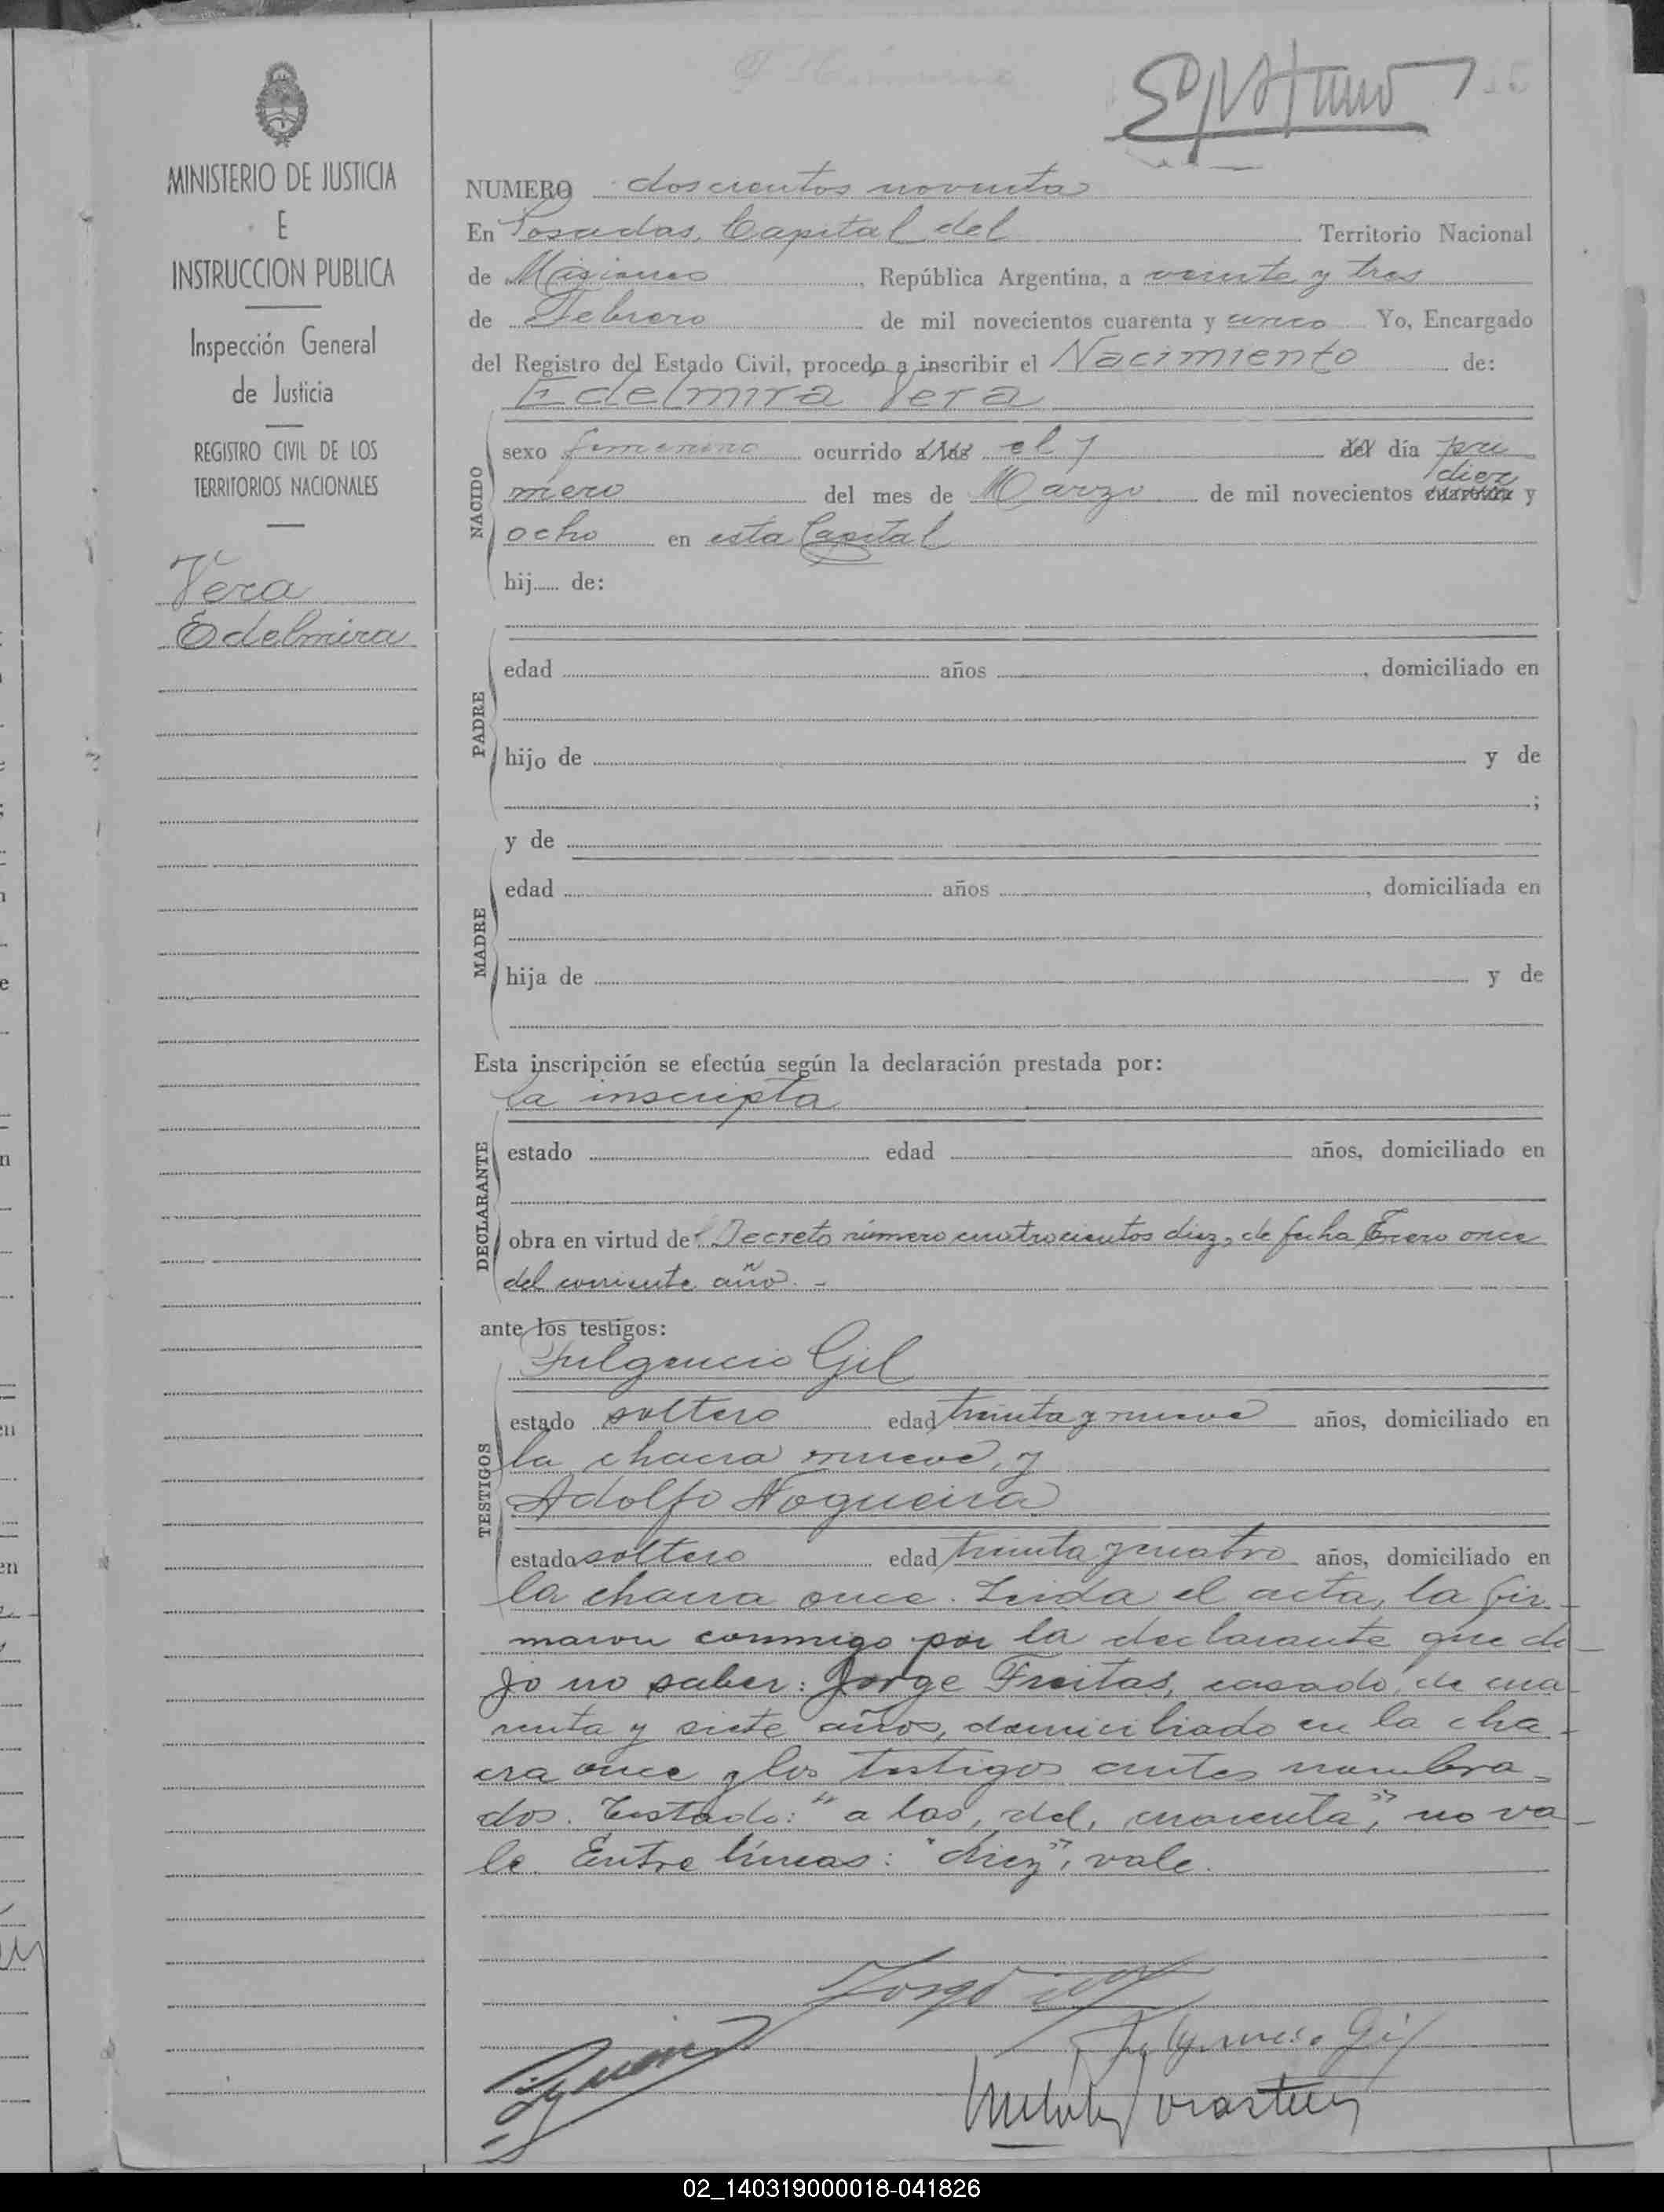 MINISTERIO DE JUSTICIA
E
INSTRUCCION PUBLICA
Inspección General
de Justicia
REGISTRO CIVIL DE LOS
TERRITORIOS NACIONALES
Vera
Edelmira
NUMERO doscientos noventa
En Posadas, Capital del Territorio Nacional
de Misiones, República Argentina, a veinte y tres
de Febrero de mil novecientos cuarenta y cinco Yo, Encargado
del Registro del Estado Civil, procedo a inscribir el Nacimiento de:
Edelmira Vera
NACIDO
sexo femenino ocurrido a las el del día pri
mero del mes de Marzo de mil novecientos cuarenta diez y
ocho en esta Capital
hij de:
PADRE
edad años, domiciliado en
hijo de y de
;
y de
MADRE
edad años, domiciliada en
hija de y de
Esta inscripción se efectúa según la declaración prestada por:
la inscripta
DECLARANTE
estado edad años, domiciliado en
obra en virtud del Decreto número cuatrocientos diez, de fecha Enero once
del corriente año. -
ante los testigos:
TESTIGOS
Fulgencio Gil
estado soltero edad treinta y nueve años, domiciliado en
la chacra nueve, y
Adolfo Nogueira
estado soltero edad treinta y cuatro años, domiciliado en
la chacra once. Leida el acta, la fir-
maron conmigo por la declarante que di-
jo no saber: Jorge Freitas, casado, de cua-
renta y siete años, domiciliado en la cha-
cra once y los testigos antes nombra-
dos. Testado: "a las, del, cuarenta", no va-
le. Entre líneas: "diez", vale.
Fulgencio Gil
02_140319000018-041826